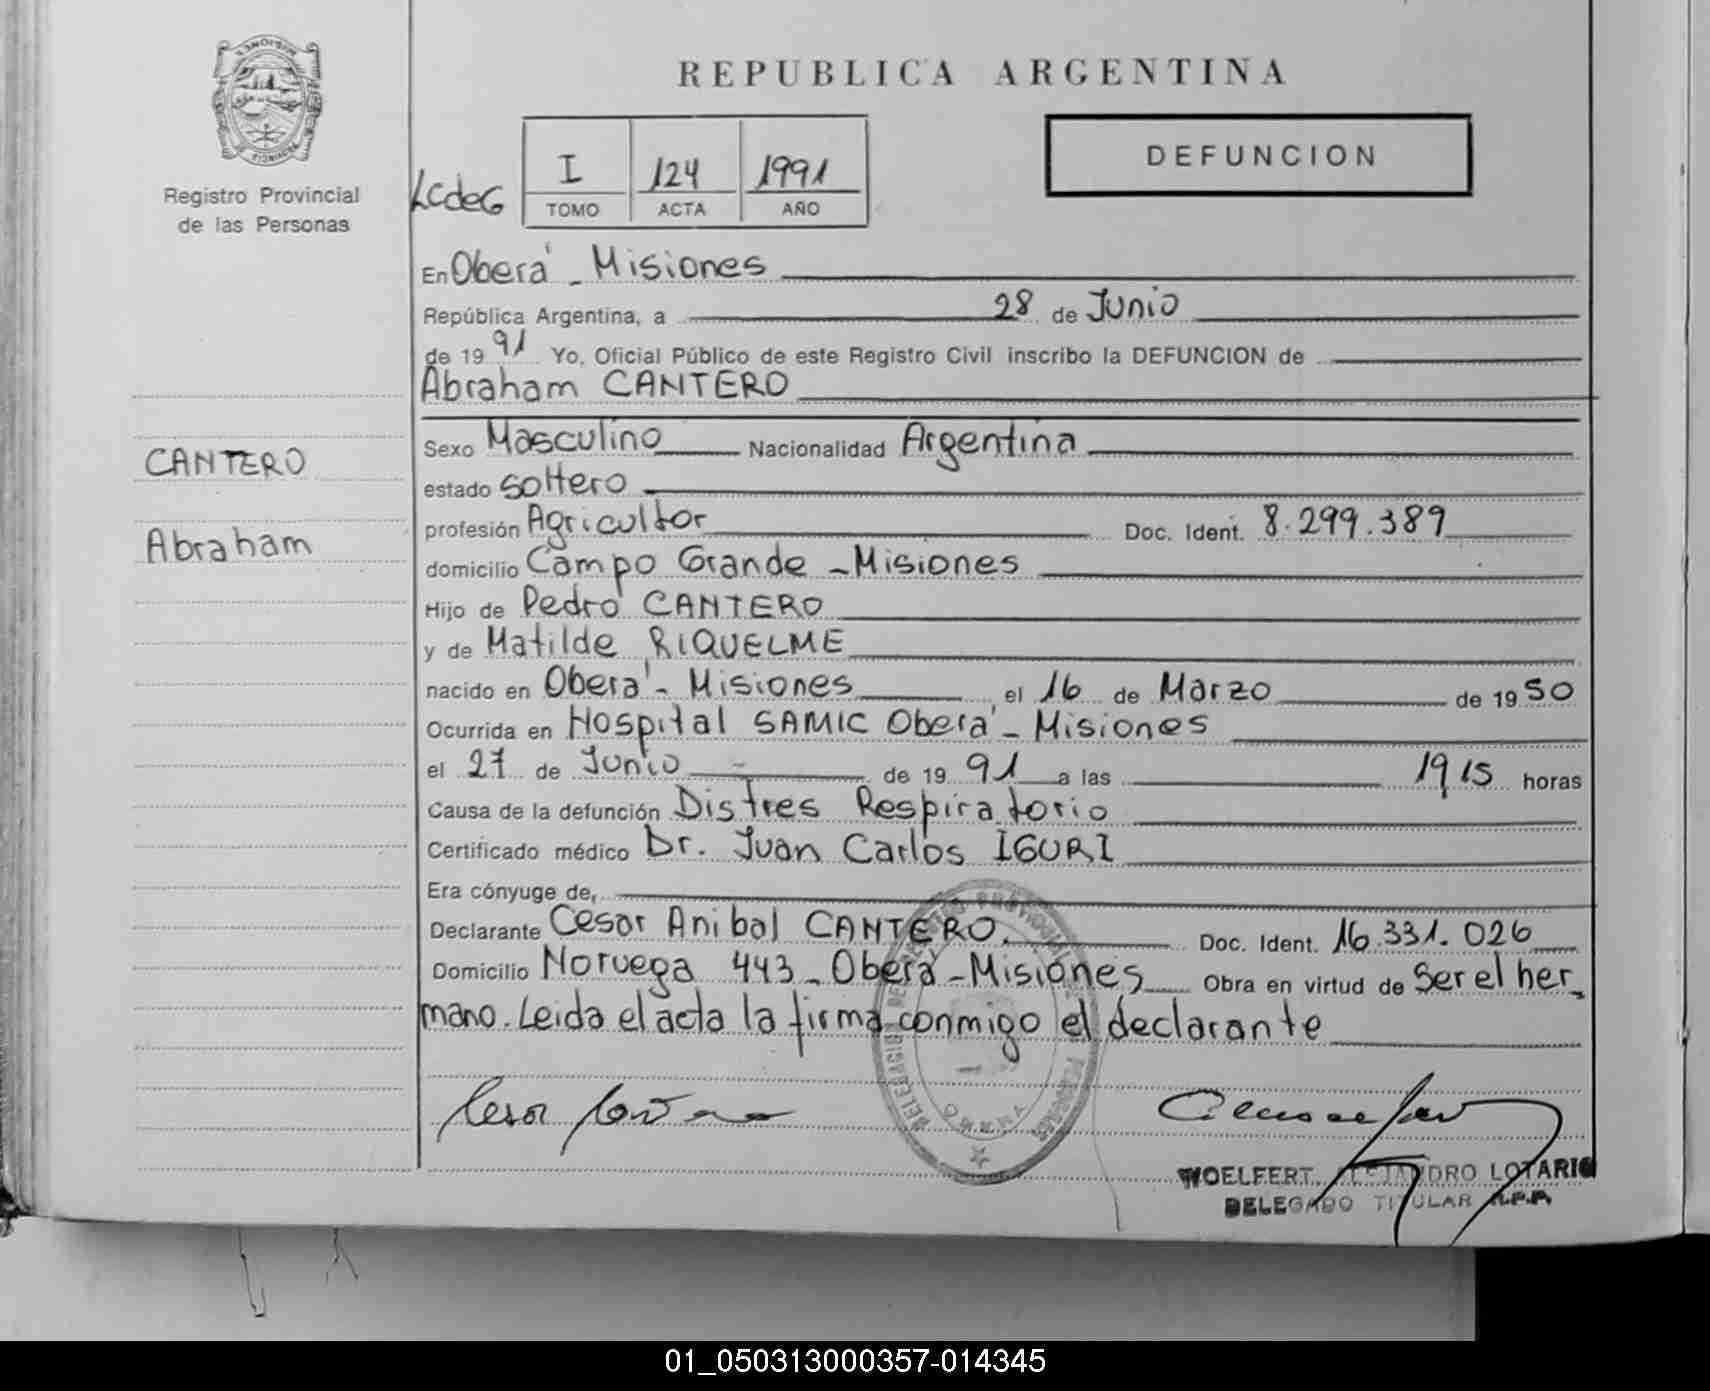 REPUBLICA ARGENTINA
DEFUNCION
Registro Provincial
de las Personas
LCdeG
I 124 1991
TOMO ACTA AÑO
En Oberá - Misiones
República Argentina, a 28 de Junio
de 19 91 Yo, Oficial Público de este Registro Civil inscribo la DEFUNCION de
Abraham CANTERO
CANTERO
Abraham
Sexo Masculino Nacionalidad Argentina
estado soltero
profesión Agricultor Doc. Ident. 8.299.389
domicilio Campo Grande - Misiones
Hijo de Pedro CANTERO
y de Matilde RIQUELME
nacido en Oberá - Misiones el 16 de Marzo de 19 50
Ocurrida en Hospital SAMIC Oberá - Misiones
el 27 de Junio de 19 91 a las 19,15 horas
Causa de la defunción Distres Respiratorio
Certificado médico Dr. Juan Carlos IGURI
Era cónyuge de,
Declarante Cesar Anibal CANTERO. Doc. Ident. 16.331.026
Domicilio Noruega 443 - Oberá - Misiones Obra en virtud de Ser el her-
mano. Leida el acta la firma conmigo el declarante
WOELFERT ALEJANDRO LOTARIO
DELEGADO TITULAR R.P.P.
01_050313000357-014345